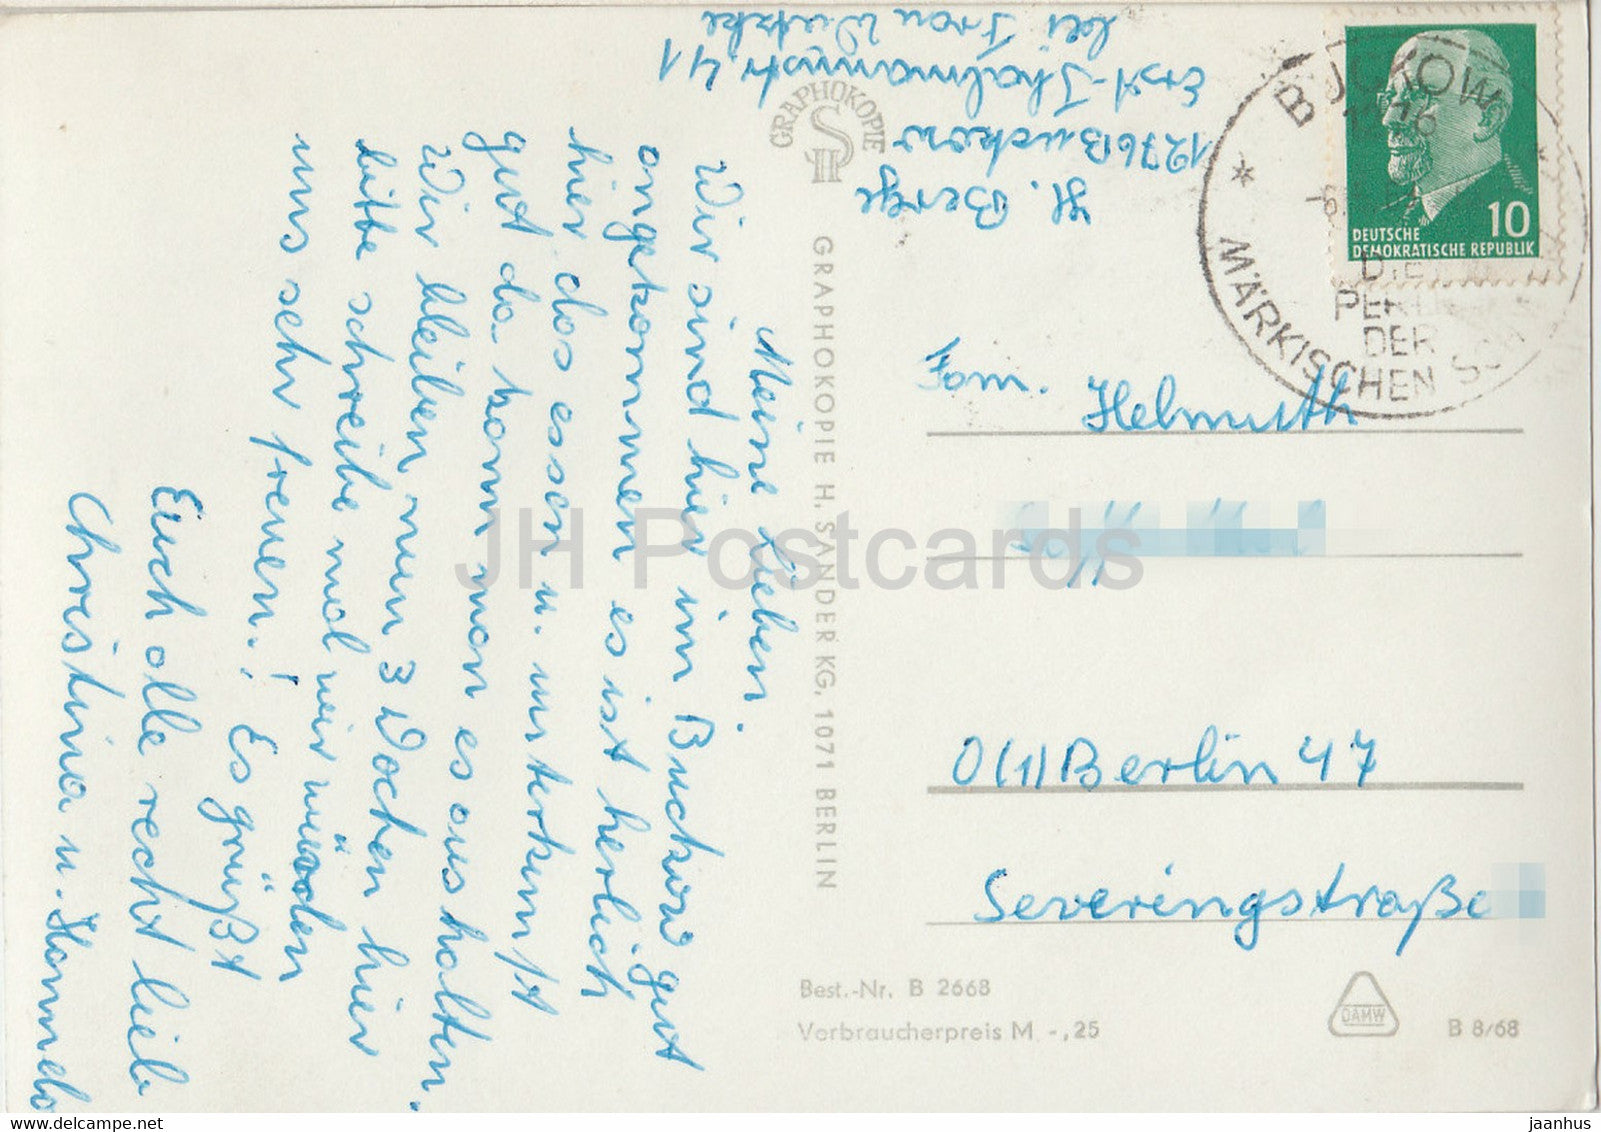 Meine Lieben.
Wir sind hier in Buckow gut
angekommen es ist herlich
hier das essen u. unterkunft
gut da kann man es aushalten.
Wir bleiben nun 3 Wochen hier
bitte schreibe mal wir würden
uns sehr freuen! Es grüßt
Euch alle recht lieb
Christina u. Hannelo
H. Berge
1276 Buckow
Ernst-Thälmannstr. 41
bei Frau Wutzke
GRAPHOKOPIE
SH
GRAPHOKOPIE H. SANDER KG, 1071 BERLIN
BUCKOW
MÄRKISCHEN
DIE
PERLE
DER
10
DEUTSCHE
DEMOKRATISCHE REPUBLIK
Fam. Helmuth
0(1)Berlin 47
Severingstraße
Best.-Nr. B 2668
Verbraucherpreis M -,25
DAMW
B 8/68
JH Postcards
delcampe.net
jaanhus